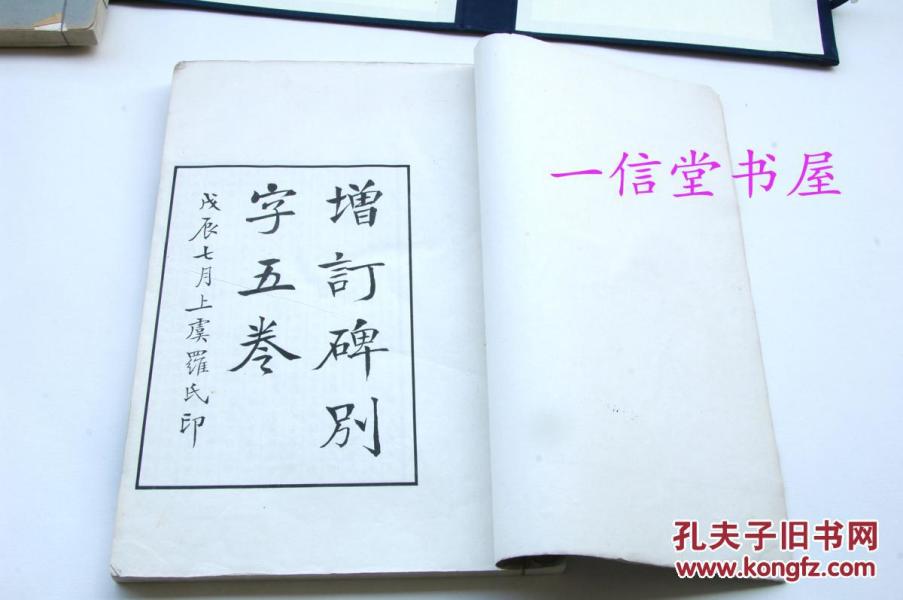 增訂碑別
字五卷
戊辰七月上虞羅氏印
一信堂书屋
孔夫子旧书网
www.kongfz.com